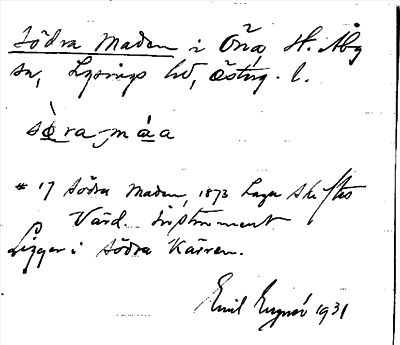 Södra Maden i Öna, St. Åby
sn, Lysings hd, Österg. l.
sø̀ra-máa
# 17 Södra Maden, 1873 Laga skiftes
Värd. instrument
Ligger i Södra Kärren.
Emil 1931